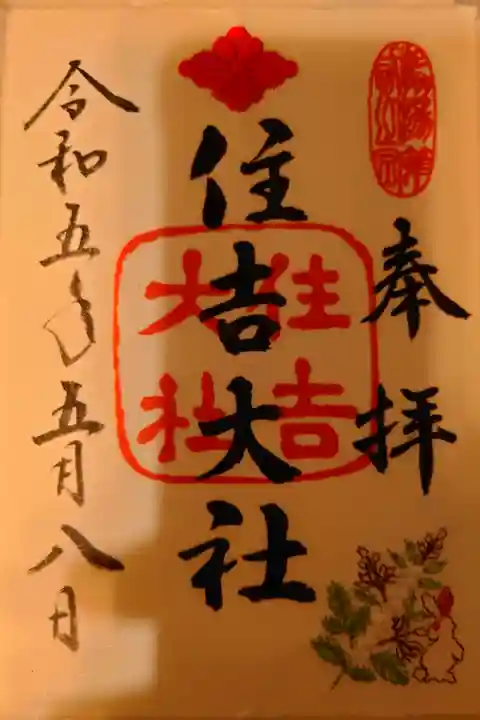 奉拝
住吉大社
住吉大社
令和五年五月八日